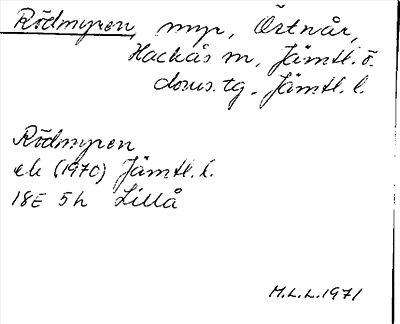 Rödmyren, myr, Östnår,
Hackås sn, Jämtl. ö.
doms. tg, Jämtl. l.
Rödmyren
ek (1970) Jämtl. l.
18E 5h Lillå
M.L.L. 1971